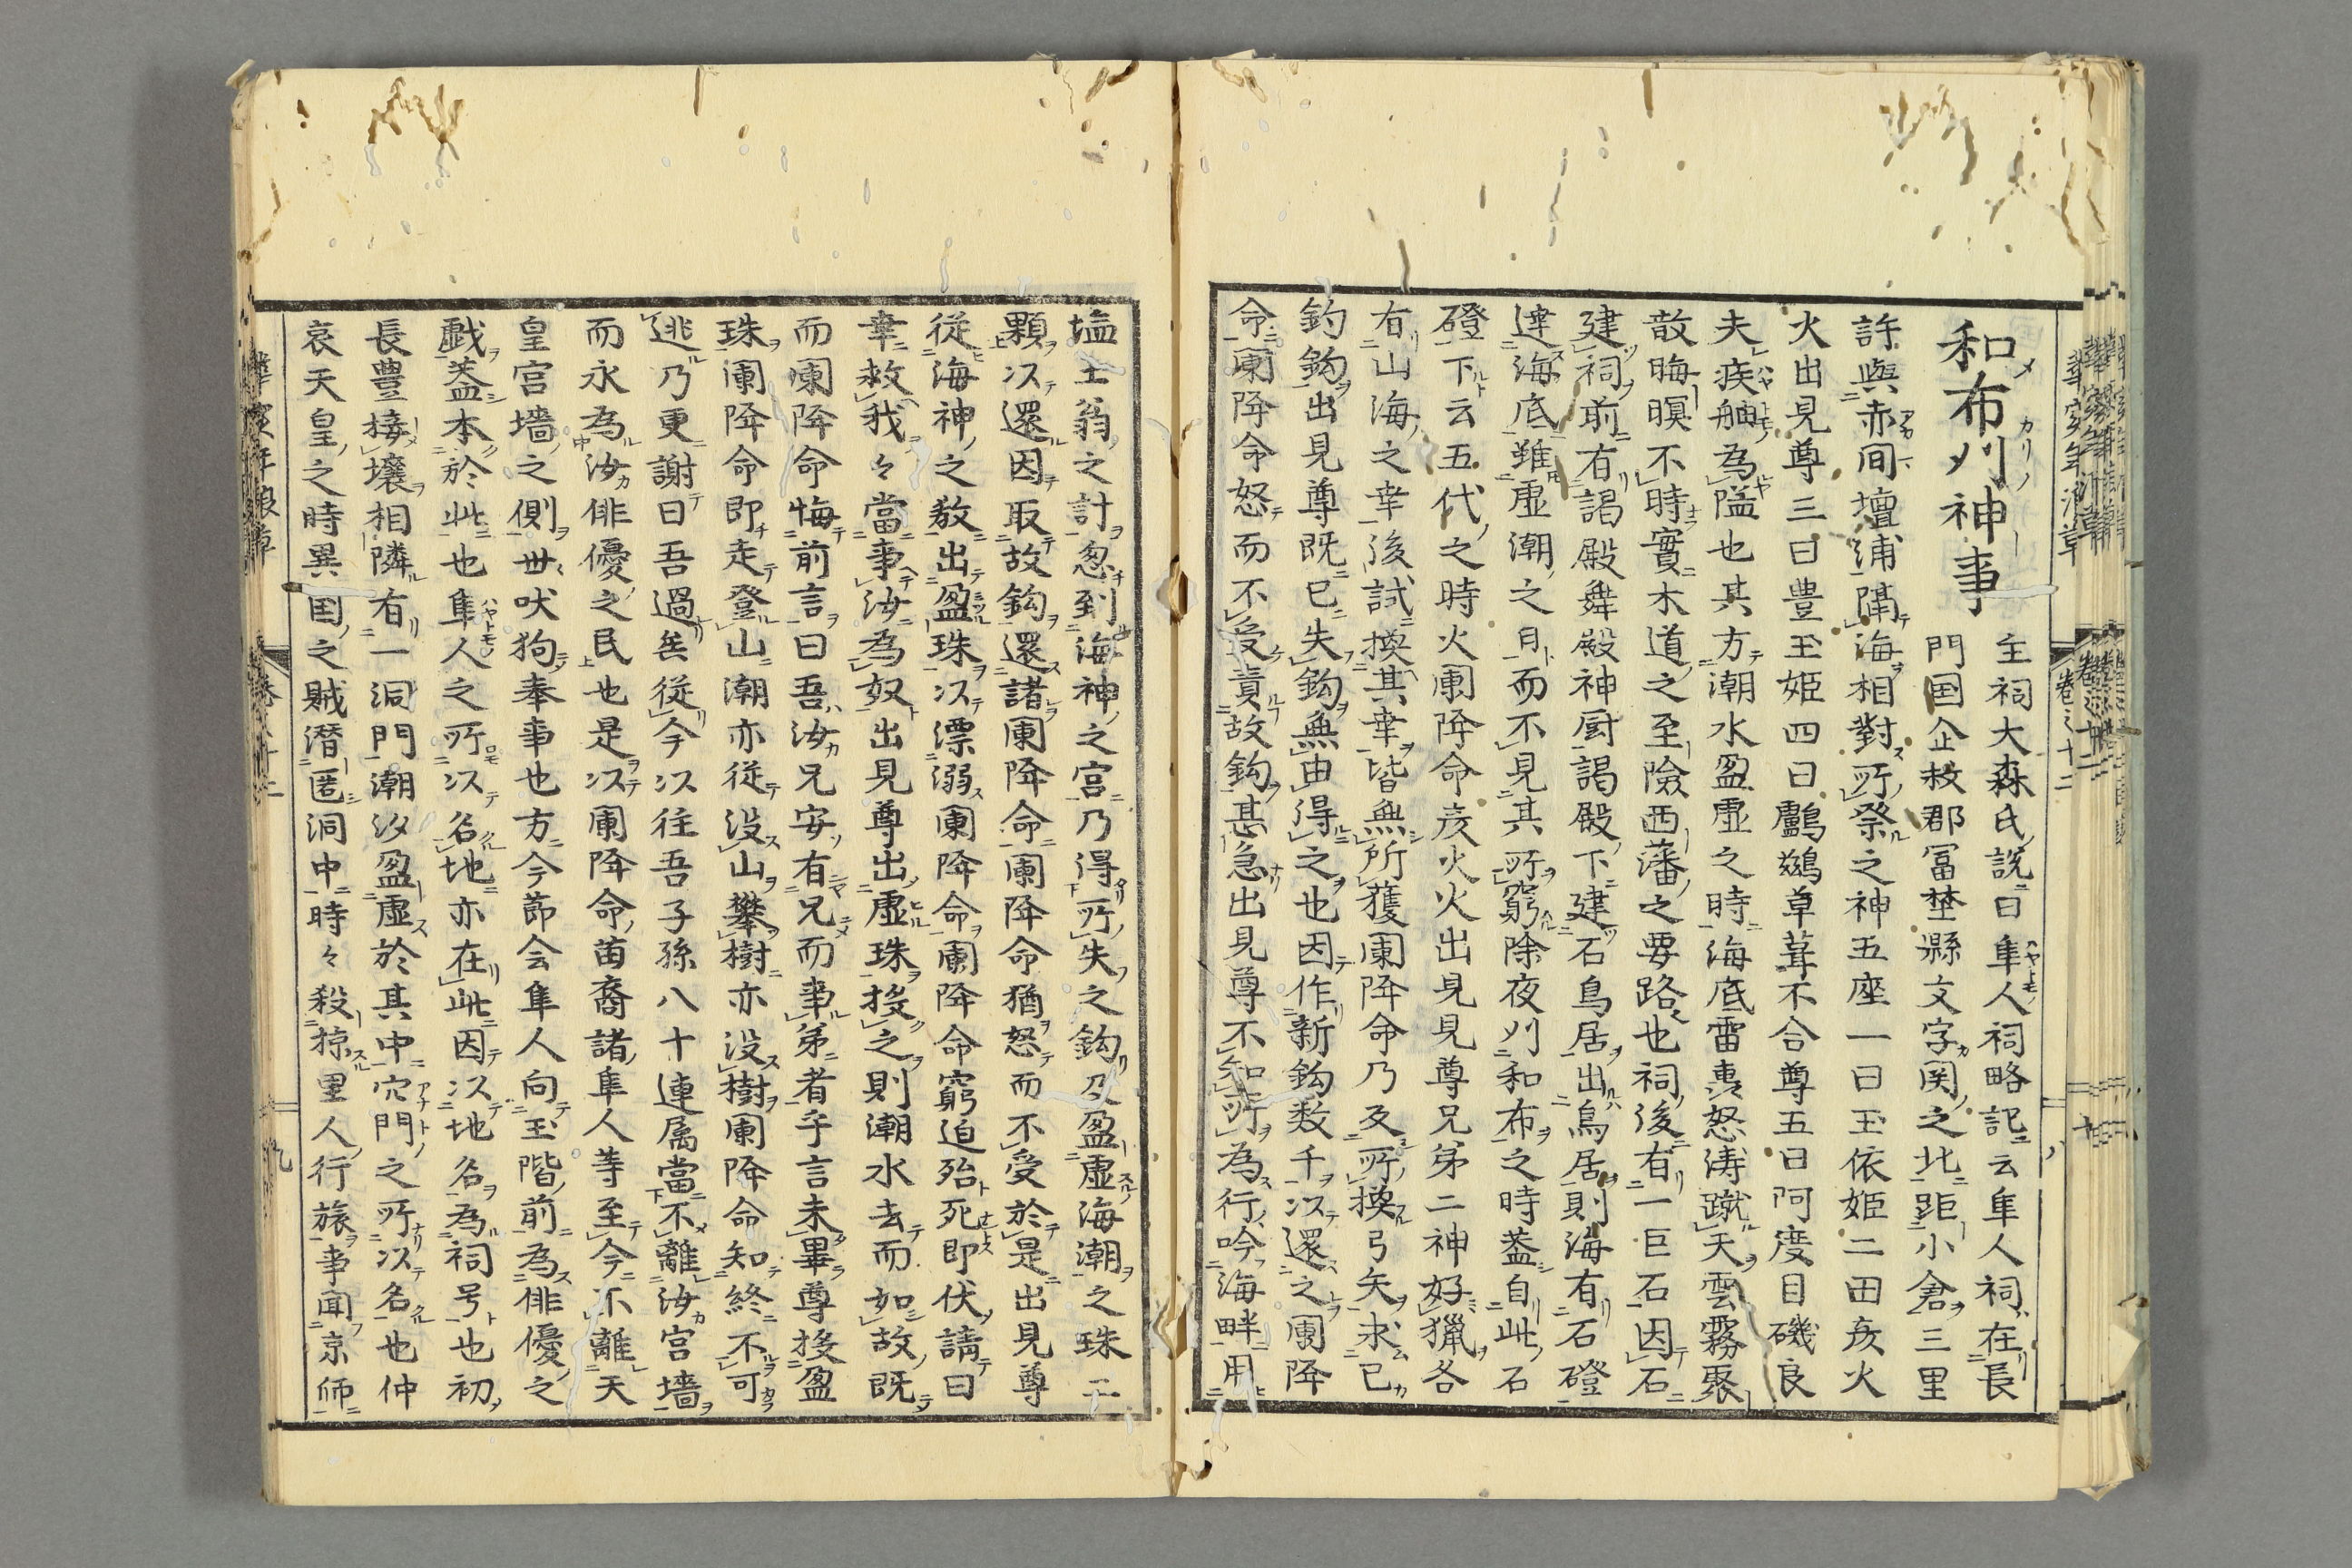 和布刈神事
主祠大森氏説曰隼人祠略記云隼人祠在長
門国企救郡冨埜縣文字関之北距小倉三里
許與赤間壇浦隔海相對所祭之神五座一曰玉依姫二田彦火
火出見尊三曰豊玉姫四曰鸕鷀草葺不合尊五曰阿度目磯良
夫疾舳為隘也其方潮水盈虚之時海底雷轟怒涛蹴天雲霧聚
散晦暝不時實木道之至險西藩之要路也祠後有一巨石因石
建祠前有謁殿舞殿神厨謁殿下建石鳥居出鳥居則海有石磴
達海底雖虚潮之日而不見其所窮除夜刈和布之時葢自此石
磴下云五代之時火闌降命彦火火出見見尊兄弟二神好獵各
有山海之幸後試換其幸皆無所獲闌降命乃及所換弓矢求已
釣鈎出見尊既已失鈎無由得之也因作新鈎数千以還之闌降
命闌降命怒而不受責故鈎甚急出見尊不知所為行吟海畔用
塩土翁之計忽到海神之宮乃得所失之鈎及盈虚海潮之珠二
顆以還因取故鈎還諸闌降命闌降命猶怒而不受於是出見尊
從海神之教出盈珠以漂溺闌降命闌降命窮迫殆死即伏請曰
幸救我々當事汝為奴出見尊出虚珠投之則潮水去而如故既
而闌降命悔前言曰吾汝兄安有兄而事弟者乎言未畢尊投盈
珠闌降命即走登山潮亦從没山攀樹亦没樹闌降命知終不可
逃乃更謝曰吾過矣從今以往吾子孫八十連属當不離汝宮墻
而永為汝俳優之民也是以闌降命苗裔諸隼人等至今不離天
皇宮墻之側世吠狗奉事也方今節会隼人向玉階前為俳優之
戯葢本於此也隼人之所以名地亦在此因以地名為祠号也初
長豊接壤相隣有一洞門潮汐盈虚於其中穴門之所以名也仲
哀天皇之時異国之賊潜匿洞中時々殺掠里人行旅事聞京師
巻之十二
九